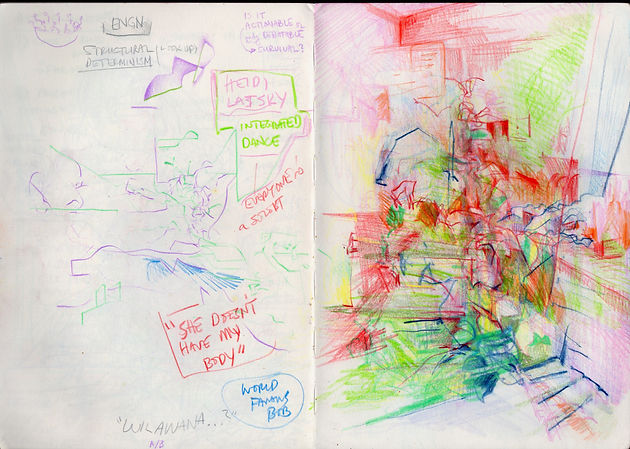 ENGN
STRUCTURAL
DETERMINISM
(LOOK UP)
IS IT
ACTIONABLE OR
DEBATABLE
SURVIVAL?
HEIDI
LATSKY
INTEGRATED
DANCE
EVERYONE'S
a
"SHE DOESN'T
HAVE MY
BODY"
WORLD
FAMOUS
BOB
"WILAWANA...?"